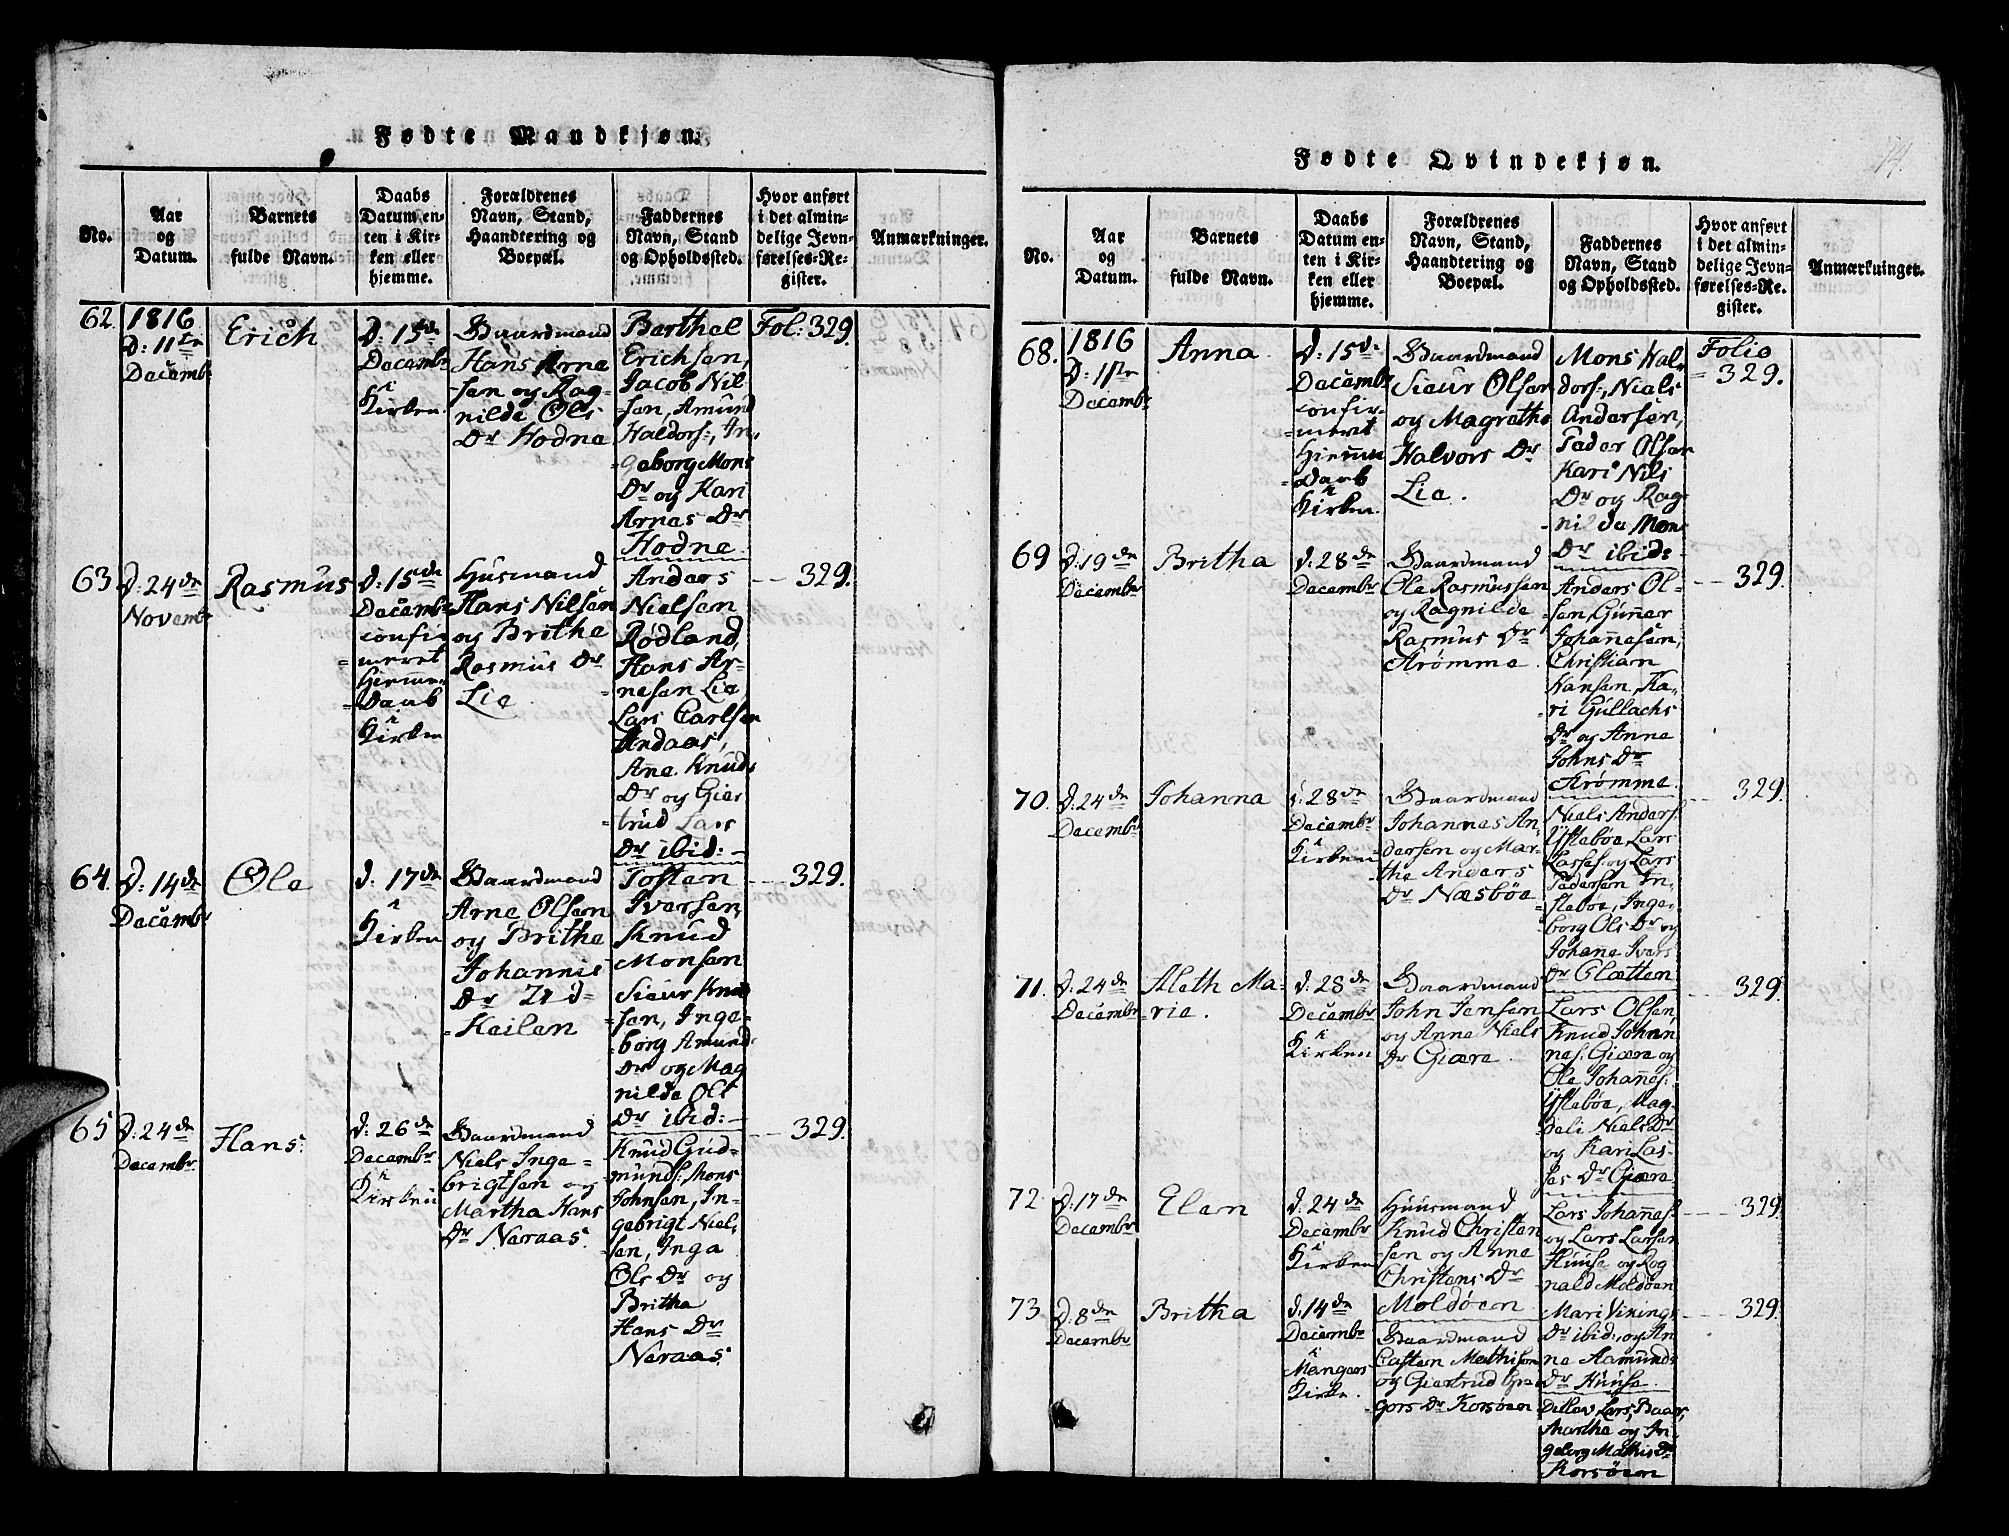 Fødte Mandkjøn.
No.
Aar
og
Datum.
Barnets
fulde Navn.
Daabs
Datum en-
ten i Kir-
ken eller
hjemme.
Forældrenes
Navn, Stand,
Haandtering og
Boepæl.
Faddernes
Navn, Stand
og Opholdssted.
Hvor anført
i det almin-
delige Jevn-
førelses-Re-
gister.
Anmærkninger.
62.
1816
D: 11te
Decembr
Erich
D: 15de
Decembr
i
Kirken
Gaardmand
Hans Arne
sen og Rag-
nilde Ols
Dr Hodne
Barthel
Erichsen,
Jacob Nil
sen, Amund
Haldors:, In,
geborg Mons
Dr og Kari
Arnes Dr
Hodne.
Fol: 329.
63.
D: 24de
Novembr
Rasmus
D: 15de
Decembr
confir-
meret
Hieme-
Daab
i
Kirken
Husmand
Hans Nilsen
og Brithe
Rasmus Dr
Lie
Anders
Nielsen
Rødland,
Hans Ar-
nesen Lie,
Lars Carlsen
Andaas,
Ane Knuds
Dr og Gier
trud Lars
Dr ibid:
329.
64.
D: 14de
Decembr
Ole
d: 17de
i
Kirken
Gaardmand
Arne Olsen
og Brithe
Johannis
Dr Ind-
Keilen
Tosten
Iversen,
Knud
Monsen
Sieur Knud
sen, Inge-
borg Amund
Dr og Mag
nilde Ols
Dr ibid:
329.
65
D: 24de
Decembr
Hans.
d: 26de
Decembr
i
Kirken
Gaardmand
Niels Inge-
brigtsen og
Martha Hans
Dr Neraas.
Knud Gud-
munds: Mons
Johnsen, In-
gebrigt Niel-
sen, Inga
Ols Dr og
Britha
Hans Dr
Neraas.
329.
74.
Fødte Qvindekjøn.
No.
Aar
og
Datum.
Barnets
fulde Navn.
Daabs
Datum en-
ten i Kir-
ken eller
hjemme.
Forældrenes
Navn, Stand,
Haandtering og
Boepæl.
Faddernes
Navn, Stand
og Opholdssted.
Hvor anført
i det almin-
delige Jevn-
førelses-Re-
gister.
Anmærkninger.
68.
1816
D: 1ste
Decembr
Anna
D: 15de
Decembr
confir-
meret
Hieme
Daab
i
Kirken
Gaardmand
Sieur Olsen
og Magrethe
Halvors Dr
Lie.
Mons Hal-
dors:, Niels
Andersen,
Peder Olsen
Kari Nils
Dr og Rag-
nilde Mons
Dr ibid:
Folio
329.
69
d: 19de
Decembr
Britha
d: 28de
Decembr
Gaardmand
Ole Rasmussen
og Ragnilde
Rasmus Dr
Strømme.
Anders Ol-
sen, Guner
Johanesen,
Christian
Hansen, Ka-
ri Gullachs
Dr og Anne
Johns Dr
Strømme.
329.
70.
d. 24de
Decembr
Johanna
d: 28de
Decembr
i
Kirken
Gaardmand
Johannes An-
dersen og Mar-
the Anders
Dr Næsbøe
Niels Anders:
Ystebøe, Lars
Larses: og Lars
Pedersen In-
stebøe, Inge-
borg Ols Dr og
Johane Ivers
Dr Sletten
329.
71.
d. 24de
Decembr
Aleth Ma-
rie.
d. 28de
Decembr
i
Kirken
Gaardmand
John Jensen
og Anne Niels
Dr Giære.
Lars Olsen,
Knud Johan
nes: Giære og
Ole Johanes:
Ystebøe, Mag-
deli Niels Dr
og Kari Las-
ses Dr Giære
329.
72
D: 17de
Decembr
Elen
d: 24de
Decembr
i
Kirken
Huusmand
Knud Christen
sen og Anne
Christens Dr
Moldøen
Lars Johanes:
og Lars Larsen
Huuse og Rog
nald Moldøen
Mari Vikings
Dr ibid:, og An-
ne Aamunds
Dr Huuse.
329.
73.
D. 8de
Decembr
Britha
d: 14de
Decembr
i
Mangers
Kirke.
Gaardmand
Casten Mathisen
og Giertrud Gre-
gors Dr Korsøen
Detlov Lars, Baar,
Marthe og In-
geborg Mathis Dr
Korsøen
329.